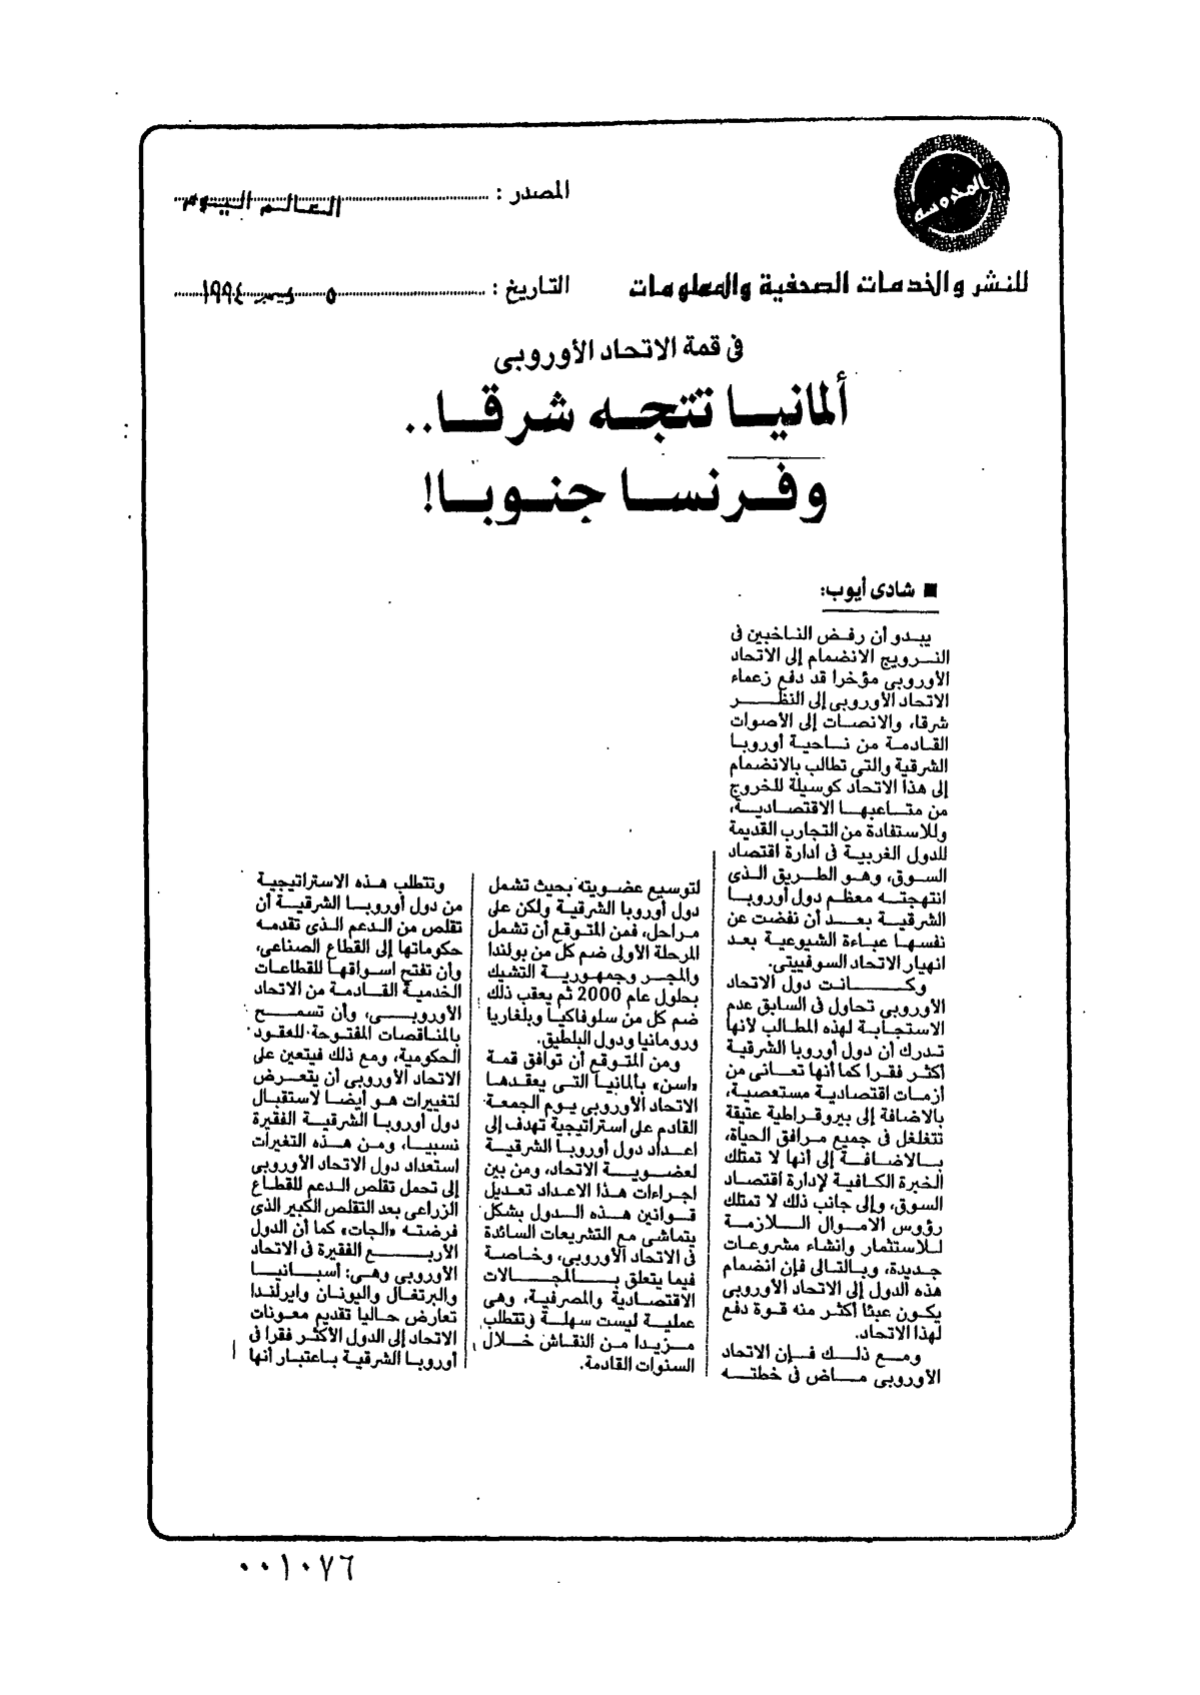 المدوسه
المصدر : العالم اليوم
للنشر والخدمات الصحفية والمعلومات
التاريخ : ٥ ديسمبر ١٩٩٤
فى قمة الاتحاد الأوروبى
ألمانيا تتجه شرقا..
وفرنسا جنوبا!
■ شادى أيوب:
يبدو أن رفض الناخبين فى
النرويج الانضمام إلى الاتحاد
الأوروبى مؤخرا قد دفع زعماء
الاتحاد الأوروبى إلى النظر
شرقا، والانصات إلى الأصوات
القادمة من ناحية أوروبا
الشرقية والتى تطالب بالانضمام
إلى هذا الاتحاد كوسيلة للخروج
من متاعبها الاقتصادية،
وللاستفادة من التجارب القديمة
للدول الغربية فى ادارة اقتصاد
السوق، وهو الطريق الذى
انتهجته معظم دول أوروبا
الشرقية بعد أن نفضت عن
نفسها عباءة الشيوعية بعد
انهيار الاتحاد السوفييتى.
وكانت دول الاتحاد
الأوروبى تحاول فى السابق عدم
الاستجابة لهذه المطالب لأنها
تدرك أن دول أوروبا الشرقية
أكثر فقرا كما أنها تعانى من
أزمات اقتصادية مستعصية،
بالاضافة إلى بيروقراطية عتيقة
تتغلغل فى جميع مرافق الحياة،
بالاضافة إلى أنها لا تمتلك
الخبرة الكافية لإدارة اقتصاد
السوق، وإلى جانب ذلك لا تمتلك
رؤوس الاموال اللازمة
للاستثمار وانشاء مشروعات
جديدة، وبالتالى فإن انضمام
هذه الدول إلى الاتحاد الأوروبى
يكون عبئا أكثر منه قوة دفع
لهذا الاتحاد.
ومع ذلك فإن الاتحاد
الأوروبى ماض فى خطته
لتوسيع عضويته بحيث تشمل
دول أوروبا الشرقية ولكن على
مراحل، فمن المتوقع أن تشمل
المرحلة الأولى ضم كل من بولندا
والمجر وجمهورية التشيك
بحلول عام 2000 ثم يعقب ذلك
ضم كل من سلوفاكيا وبلغاريا
ورومانيا ودول البلطيق.
ومن المتوقع أن توافق قمة
«اسن» بألمانيا التى يعقدها
الاتحاد الأوروبى يوم الجمعة
القادم على استراتيجية تهدف إلى
اعداد دول أوروبا الشرقية
لعضوية الاتحاد، ومن بين
اجراءات هذا الاعداد تعديل
قوانين هذه الدول بشكل
يتماشى مع التشريعات السائدة
فى الاتحاد الأوروبى، وخاصة
فيما يتعلق بالمجالات
الاقتصادية والمصرفية، وهى
عملية ليست سهلة وتتطلب
مزيدا من النقاش خلال
السنوات القادمة.
وتتطلب هذه الاستراتيجية
من دول أوروبا الشرقية أن
تقلص من الدعم الذى تقدمه
حكوماتها إلى القطاع الصناعى،
وأن تفتح اسواقها للقطاعات
الخدمية القادمة من الاتحاد
الأوروبى، وأن تسمح
بالمناقصات المفتوحة للعقود
الحكومية، ومع ذلك فيتعين على
الاتحاد الأوروبى أن يتعرض
لتغييرات هو أيضا لاستقبال
دول أوروبا الشرقية الفقيرة
نسبيا، ومن هذه التغيرات
استعداد دول الاتحاد الأوروبى
إلى تحمل تقلص الدعم للقطاع
الزراعى بعد التقلص الكبير الذى
فرضته «الجات» كما أن الدول
الأربع الفقيرة فى الاتحاد
الأوروبى وهى: أسبانيا
والبرتغال واليونان وايرلندا
تعارض حاليا تقديم معونات
الاتحاد إلى الدول الأكثر فقرا فى
أوروبا الشرقية باعتبار أنها
٠٠١٠٧٦